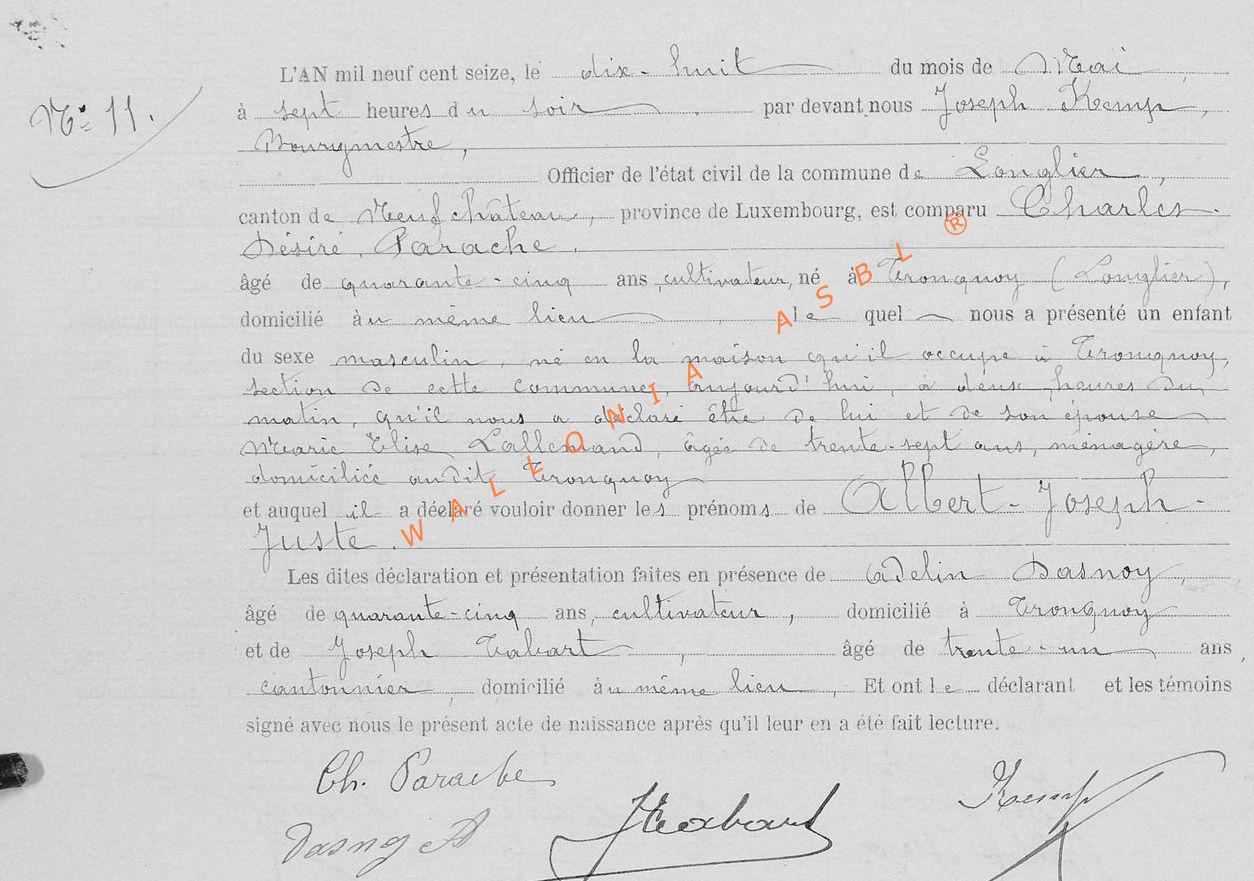 L'AN mil neuf cent seize, le dix-huit du mois de Mai
N° 11. à sept heures du soir par devant nous Joseph Kemp,
Bourgmestre,
Officier de l'état civil de la commune de Longlier,
canton de Neufchâteau, province de Luxembourg, est comparu Charles
Désiré Parache,
âgé de quarante-cinq ans, cultivateur, né à Tronquoy (Longlier),
domicilié au même lieu lequel nous a présenté un enfant
du sexe masculin, né en la maison qu'il occupe à Tronquoy,
section de cette commune, aujourd'hui, à deux heures du
matin, qu'il nous a déclaré être de lui et de son épouse
Marie Elise Lallemand, âgée de trente-sept ans, ménagère,
domiciliée audit Tronquoy
et auquel il a déclaré vouloir donner les prénoms de Albert-Joseph-
Juste.
WALLONIA ASBL ®
Les dites déclaration et présentation faites en présence de Adelin Dasnoy,
âgé de quarante-cinq ans, cultivateur, domicilié à Tronquoy
et de Joseph Tabart, âgé de trente-un ans,
cantonnier, domicilié au même lieu, Et ont le déclarant et les témoins
signé avec nous le présent acte de naissance après qu'il leur en a été fait lecture.
Ch. Parache
Kemp
JTabart
Dasnoy A